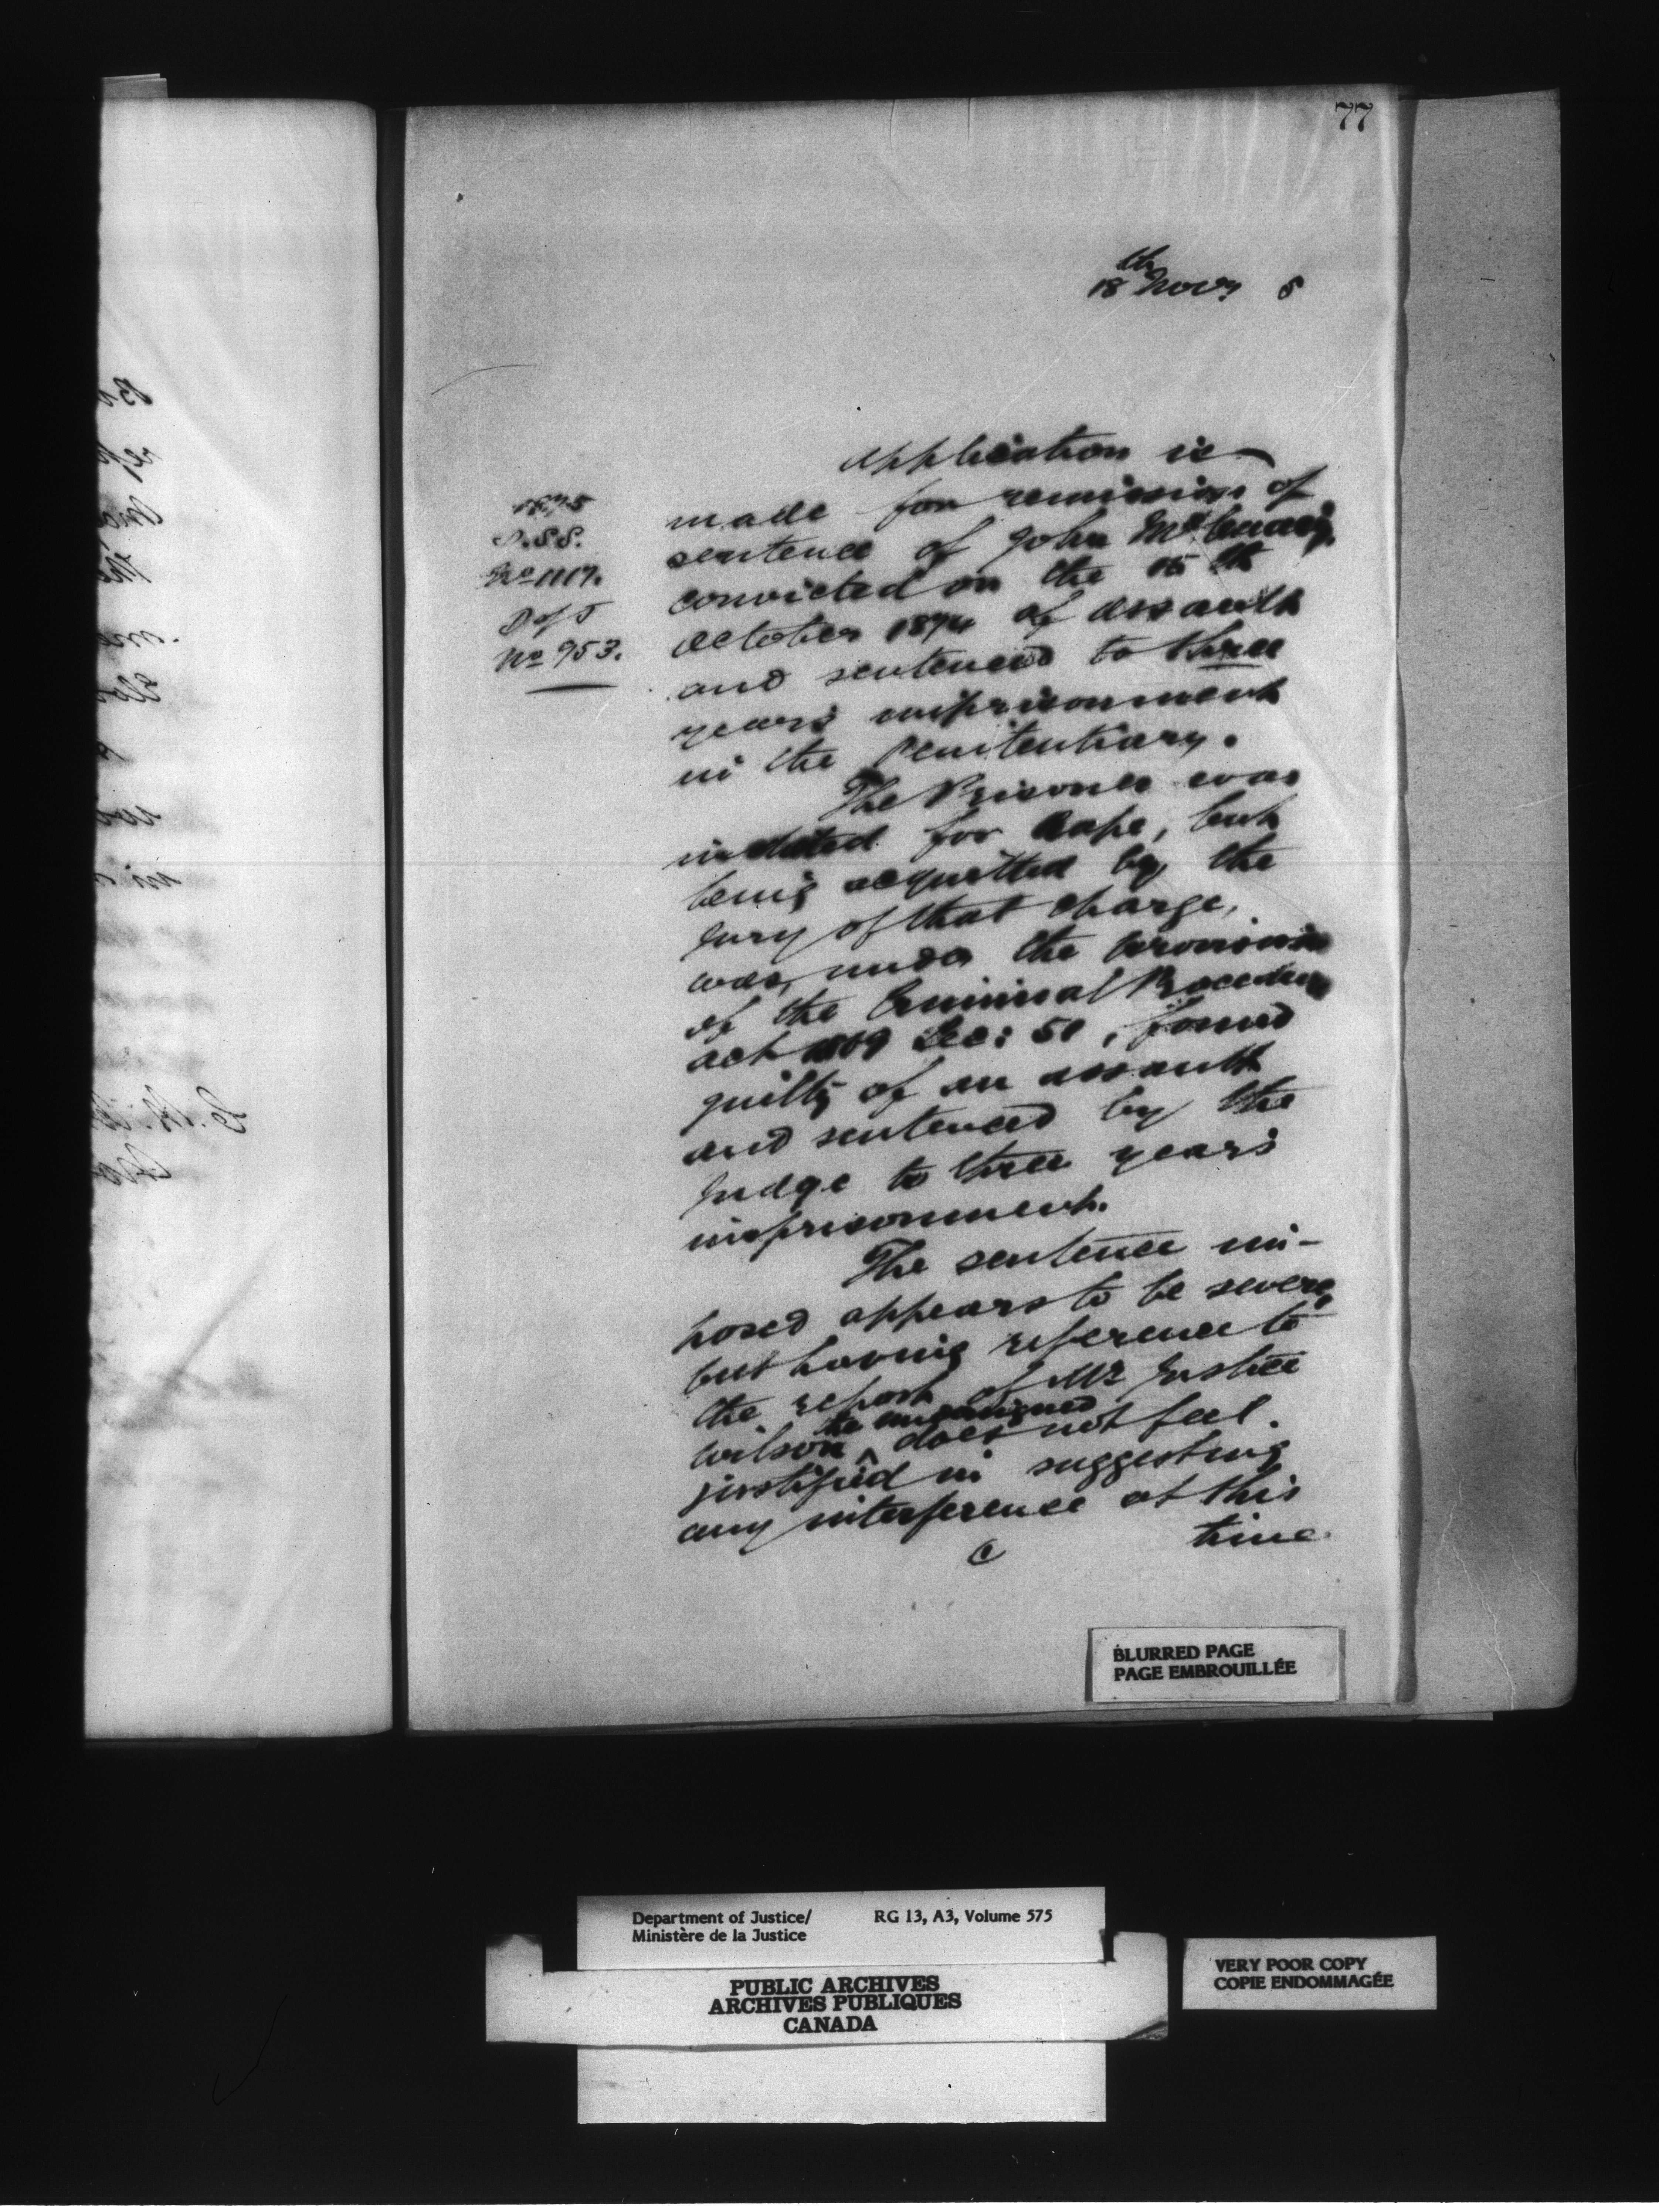 77
18th Novr 5
1875
D.S.S.
No 1117.
D of J
No 953.
Application is
made for remission of
sentence of John
convicted on the 15th
October 1874 of assault
and sentenced to three
years imprisonment
in the Penitentiary.
The Prisoner was
indicted for Rape, but
being acquitted by the
Jury of that charge,
was, under the provisions
of the Criminal Procedure
Act 1869 Sec: 51, found
guilty of an assault
and sentenced by the
Judge to three years
imprisonment.
The sentence im-
posed appears to be severe,
but having reference to
the report of Mr Justice
the undersigned
Wilson ^ does not feel
justified in suggesting
any interference at this
time
BLURRED PAGE
PAGE EMBROUILLÉE
Department of Justice/ RG 13, A3, Volume 575
Ministère de la Justice
PUBLIC ARCHIVES
ARCHIVES PUBLIQUES
CANADA
VERY POOR COPY
COPIE ENDOMMAGÉE